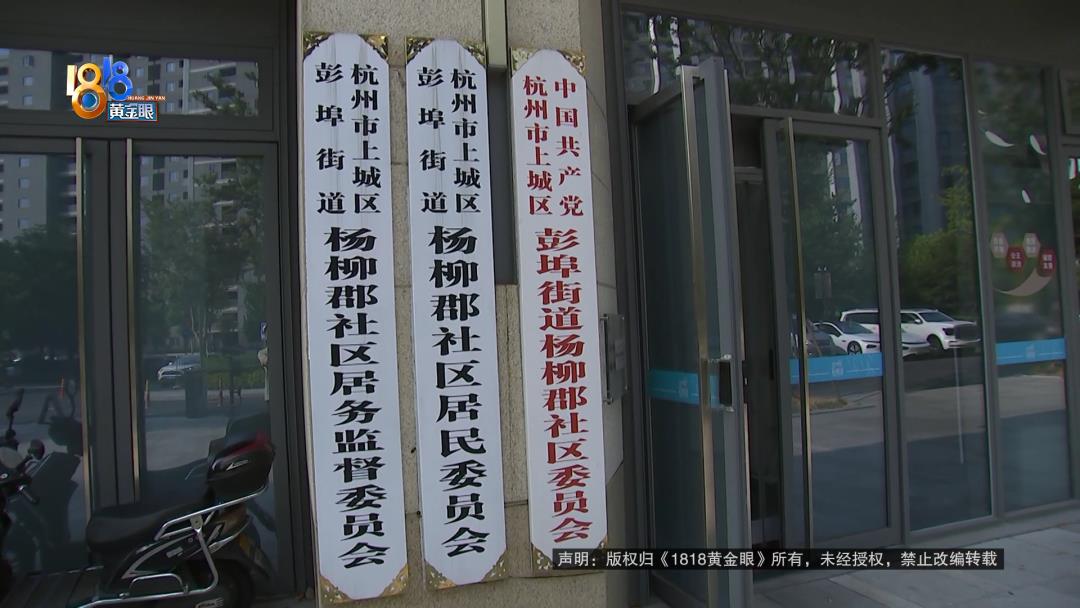 1818
HUANG JIN YAN
黄金眼
杭州市上城区
彭埠街道
杨柳郡社区居务监督委员会
杭州市上城区
彭埠街道
杨柳郡社区居民委员会
中国共产党
杭州市上城区
彭埠街道杨柳郡社区委员会
声明：版权归《1818黄金眼》所有，未经授权，禁止改编转载